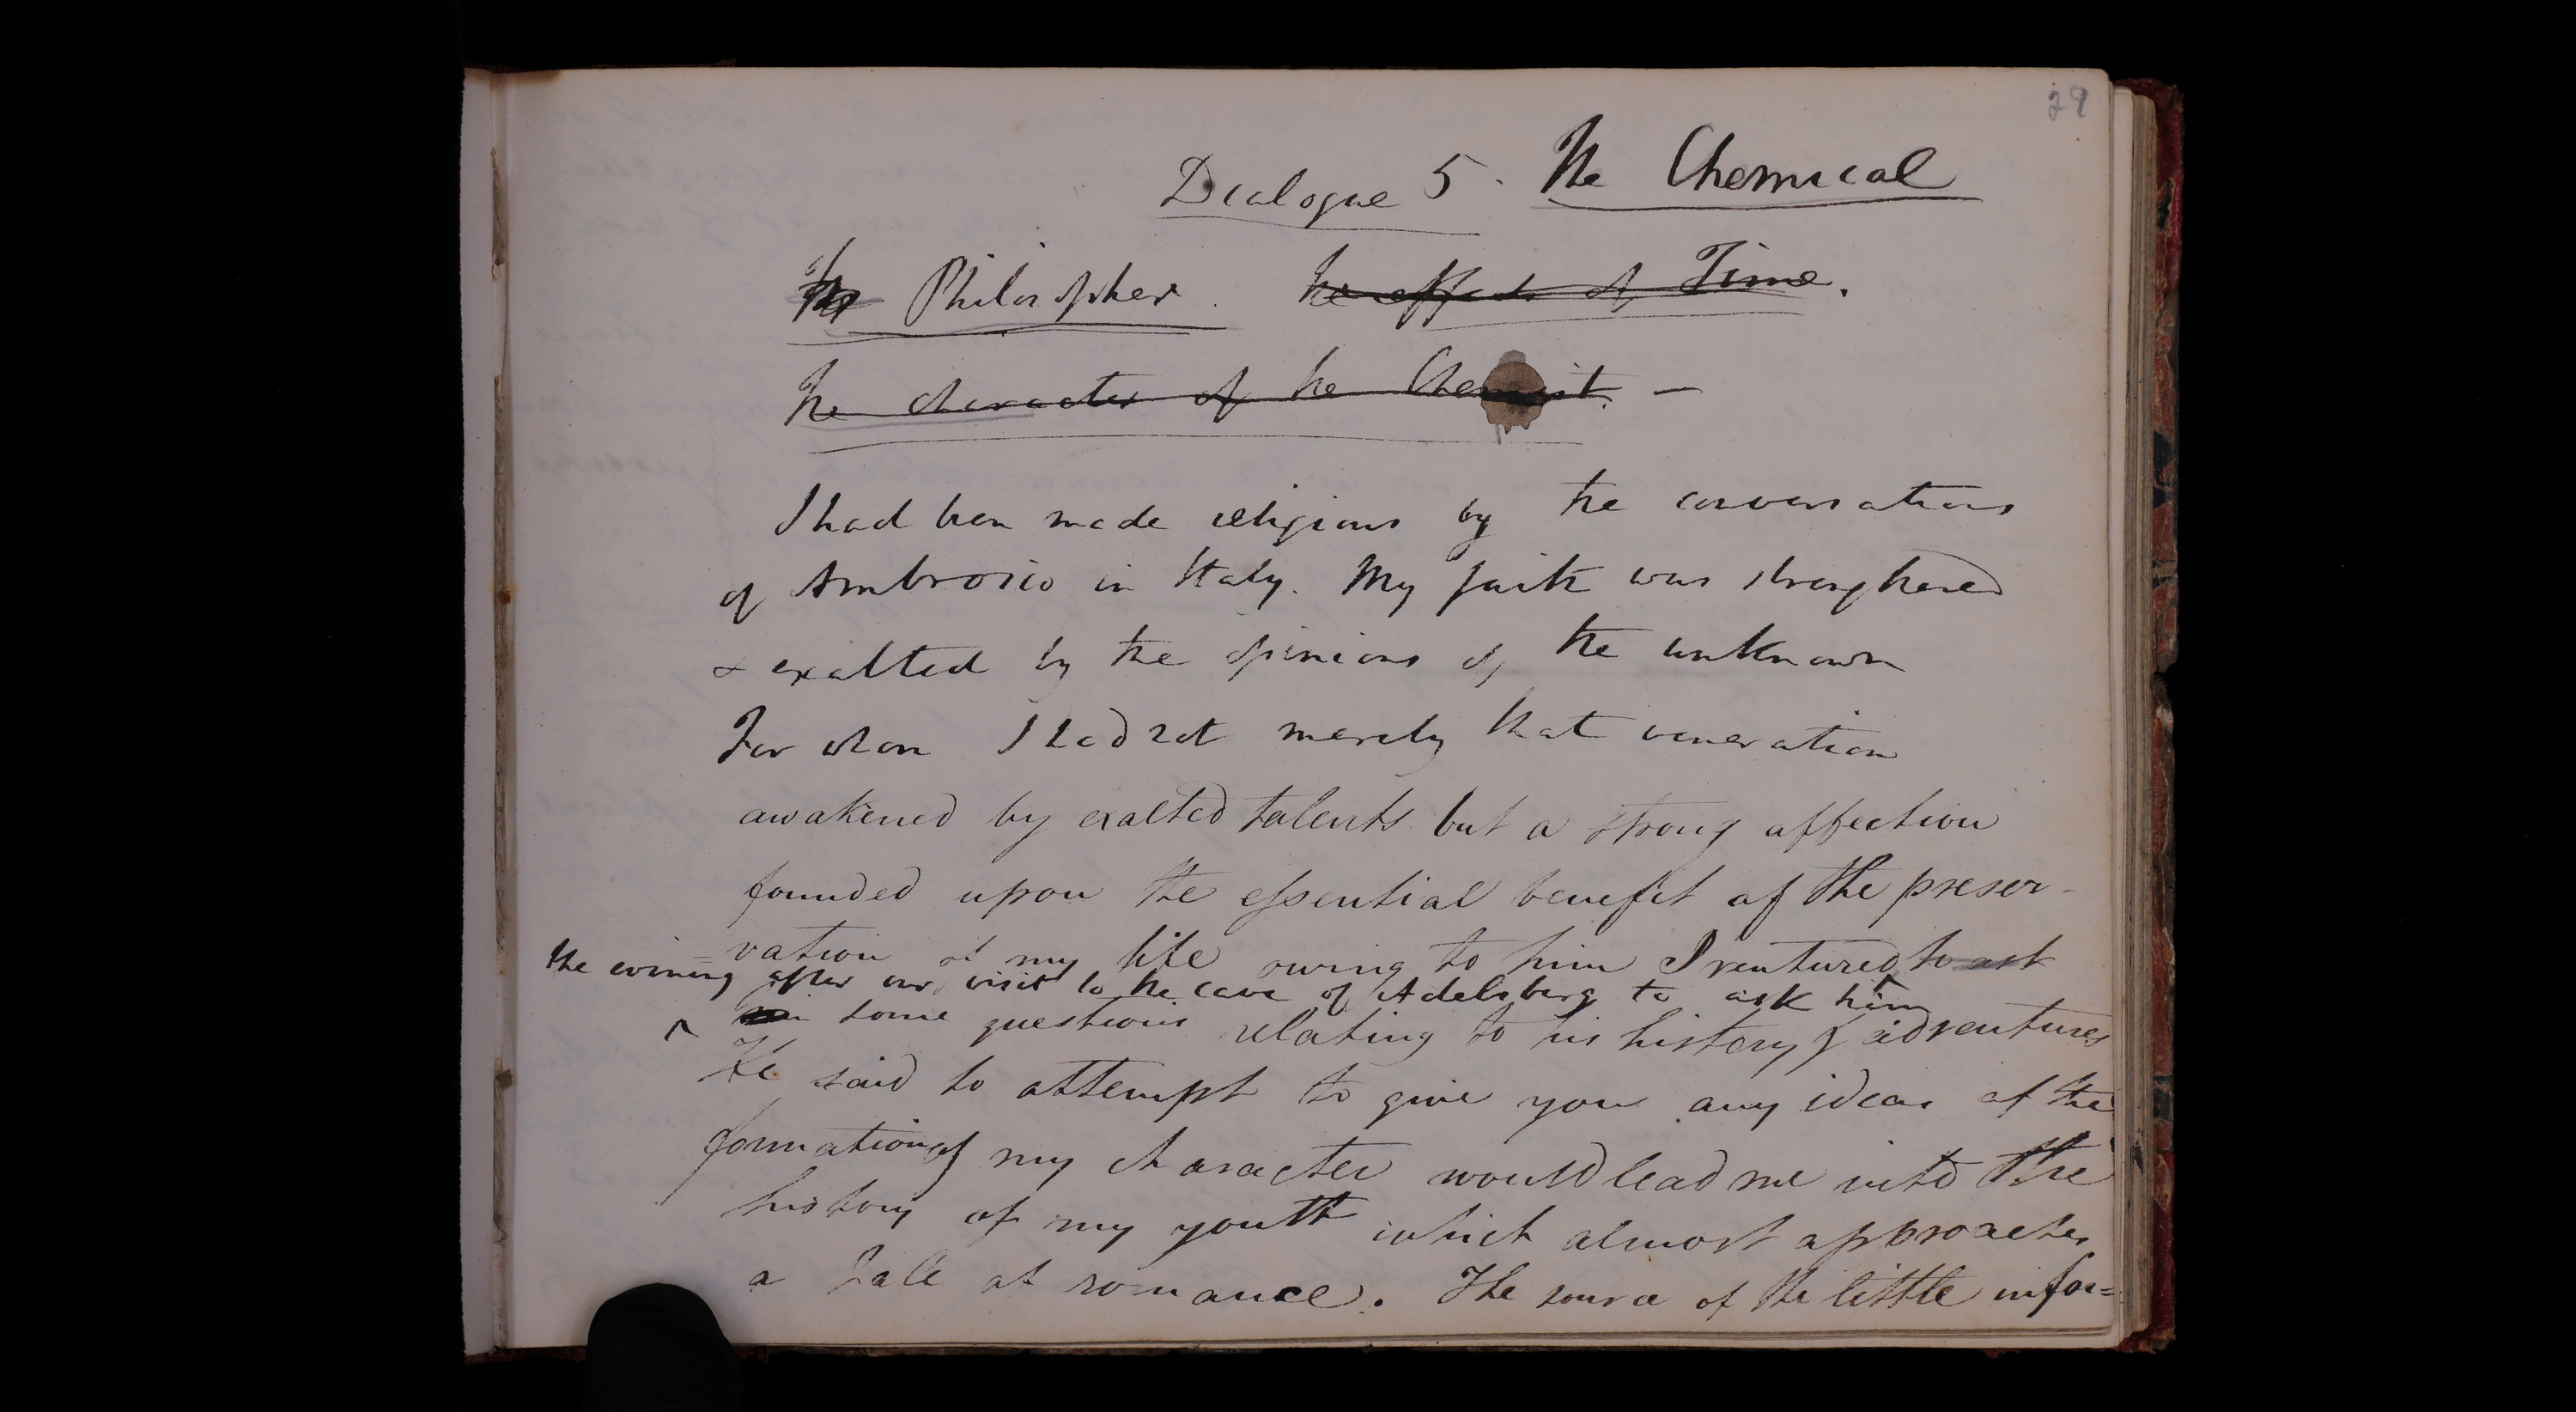 29
Dialogue 5. The Chemical
The Philosopher. The effects of Time.
The character of the Chemist. —
I had been made religious by the conversations
of Ambrosio in Italy. My faith was strengthened
& exalted by the opinions of the unknown
For whom I had not merely that veneration
awakened by exalted talents but a strong affection
founded upon the essential benefit of the preser-
=vation of my life owing to him I ventured to ask
the evening after our visit to the cave of Adelsberg to ask him
some questions relating to his history & adventures
He said to attempt to give you any ideas of the
formation of my character would lead me into the
history of my youth which almost approaches
a Tale of romance. The source of the little infor=